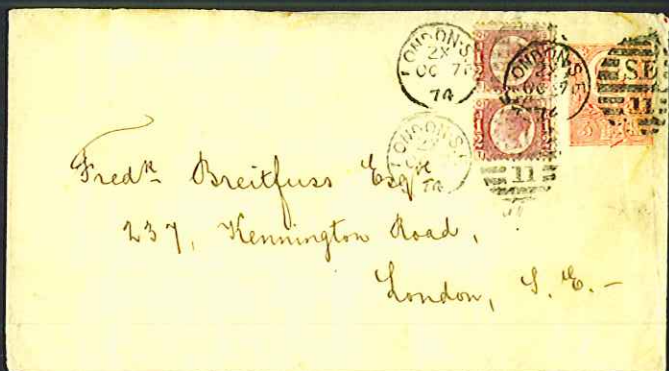 LONDON·S.E
2X
OC 7
74
LONDON·S.E
2X
OC 7
74
SE
11
LONDON·S.E
2X
74
11
Fredk Breitfuss Esqre
237, Kennington Road,
London, S. E. –